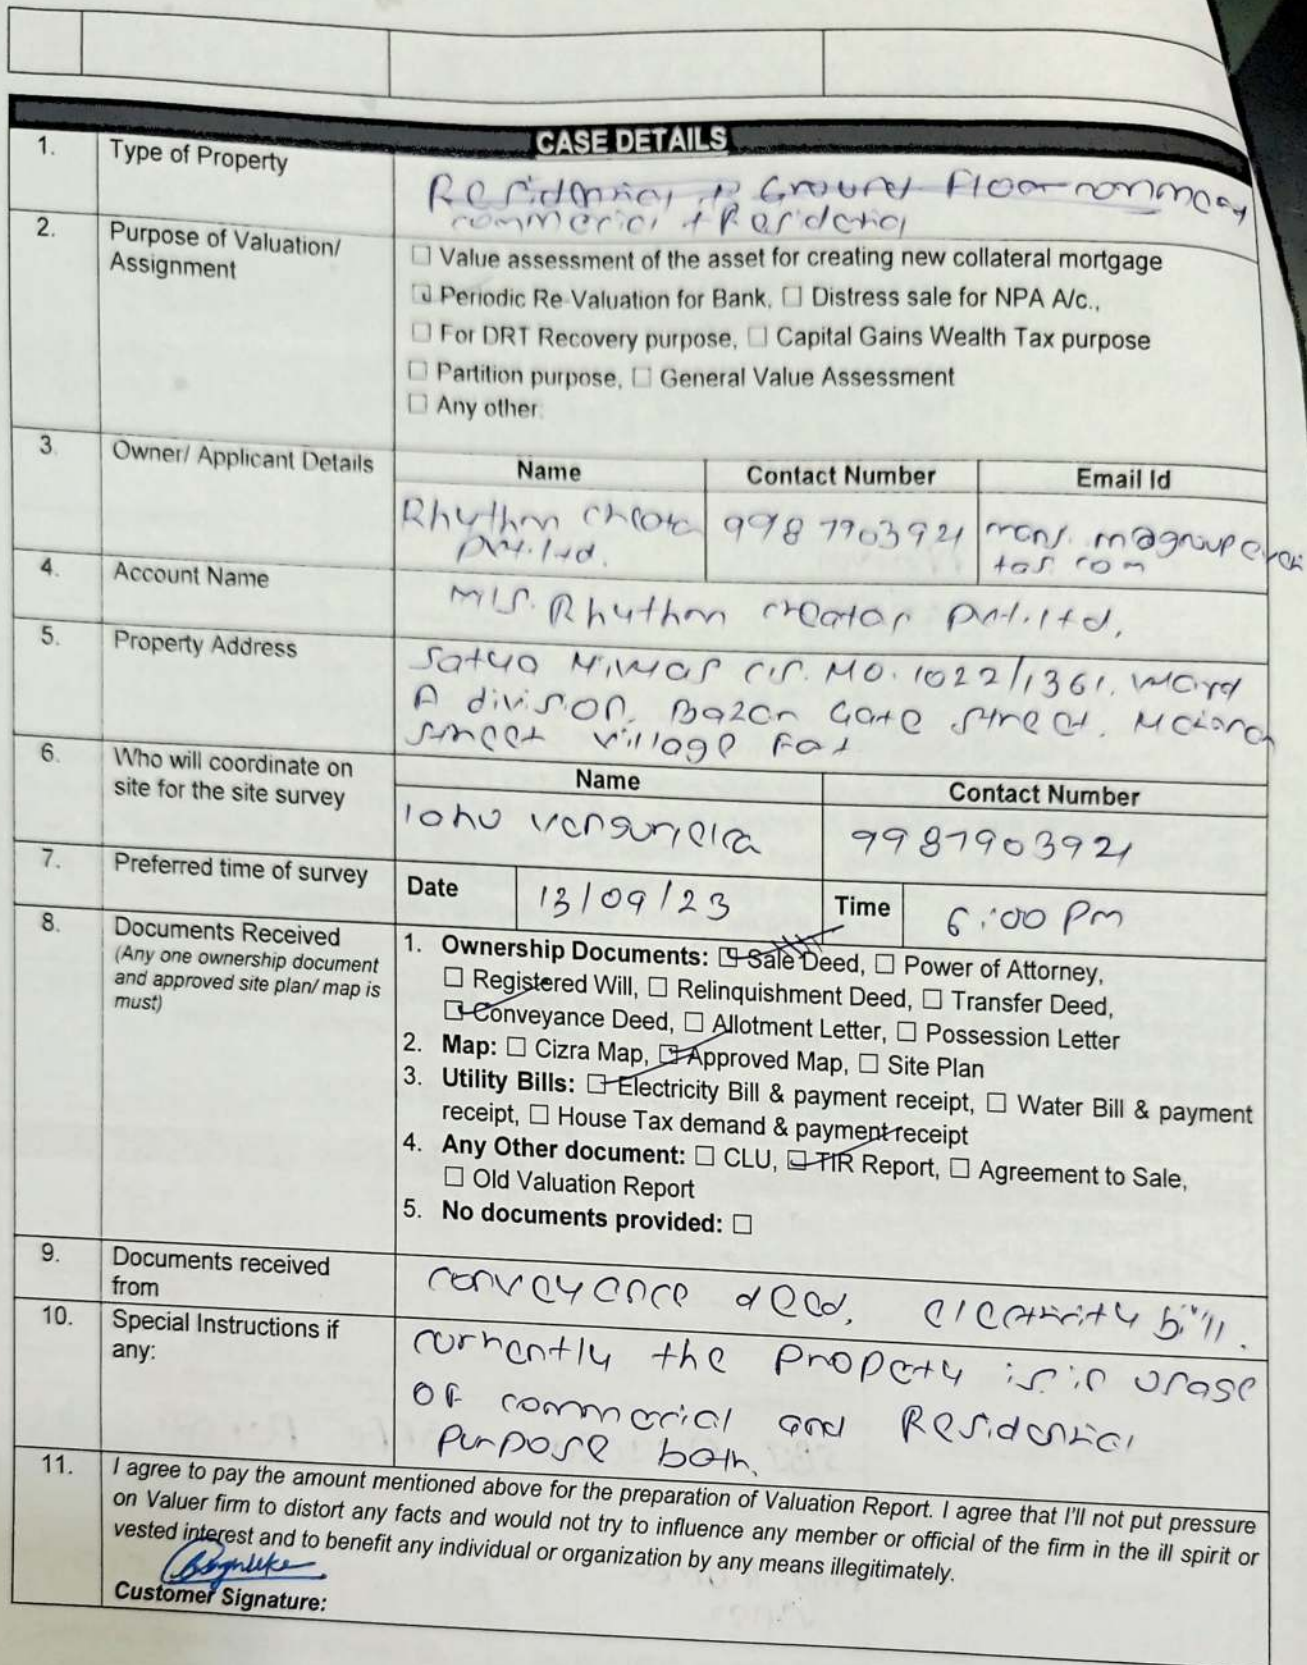 CASE DETAILS
1. Type of Property
Ground Floor
commercial + Residential
2. Purpose of Valuation/ Assignment
☐ Value assessment of the asset for creating new collateral mortgage
☑ Periodic Re-Valuation for Bank, ☐ Distress sale for NPA A/c.,
☐ For DRT Recovery purpose, ☐ Capital Gains Wealth Tax purpose
☐ Partition purpose, ☐ General Value Assessment
☐ Any other:
3. Owner/ Applicant Details
Name Contact Number Email Id
Rhythm 9987903921
pvt. ltd.
4. Account Name
M/S. Rhythm creator pvt. ltd.
5. Property Address
Satya Nivas C.S. NO. 1022/1361, ward
A division, Bazar Gate street,
street village Fort
6. Who will coordinate on
site for the site survey
Name Contact Number
9987903921
7. Preferred time of survey
Date 13/09/23 Time 6:00 Pm
8. Documents Received
(Any one ownership document
and approved site plan/ map is
must)
1. Ownership Documents: ☑ Sale Deed, ☐ Power of Attorney,
☐ Registered Will, ☐ Relinquishment Deed, ☐ Transfer Deed,
☑ Conveyance Deed, ☐ Allotment Letter, ☐ Possession Letter
2. Map: ☐ Cizra Map, ☑ Approved Map, ☐ Site Plan
3. Utility Bills: ☑ Electricity Bill & payment receipt, ☐ Water Bill & payment
receipt, ☐ House Tax demand & payment receipt
4. Any Other document: ☐ CLU, ☑ TIR Report, ☐ Agreement to Sale,
☐ Old Valuation Report
5. No documents provided: ☐
9. Documents received
from
conveyance deed, electricity bill.
10. Special Instructions if
any:
currently the property is in
of commercial and Residential
purpose both.
11. I agree to pay the amount mentioned above for the preparation of Valuation Report. I agree that I'll not put pressure
on Valuer firm to distort any facts and would not try to influence any member or official of the firm in the ill spirit or
vested interest and to benefit any individual or organization by any means illegitimately.
Customer Signature: